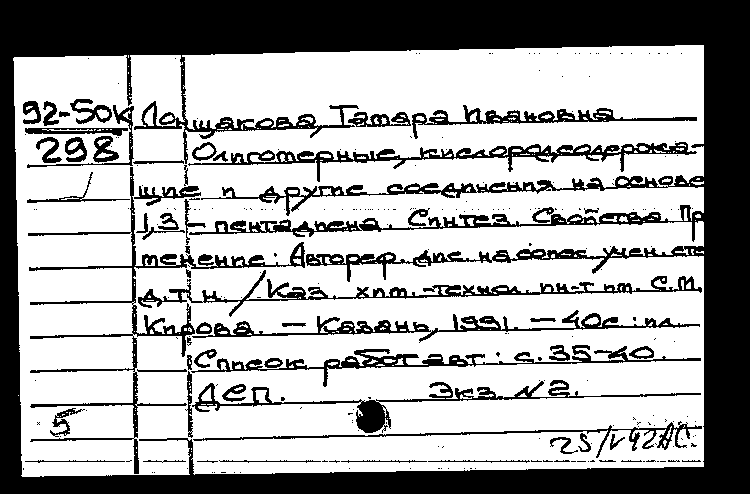 92-50к Лонщакова, Тамара Ивановна.
298 Олигомерные, кислородсодержа-
щие и другие соединения на основе
1,3 - пентадиена. Синтез. Свойства. Пр
менение: Автореф. дис. на соиск учен. сте
д.т.н. / Каз. хим.-технол. ин-т им. С.М.
Кирова. - Казань, 1991. - 40с : ил.
Список работ авт : с. 35-40.
ДСП. Экз № 2.
5